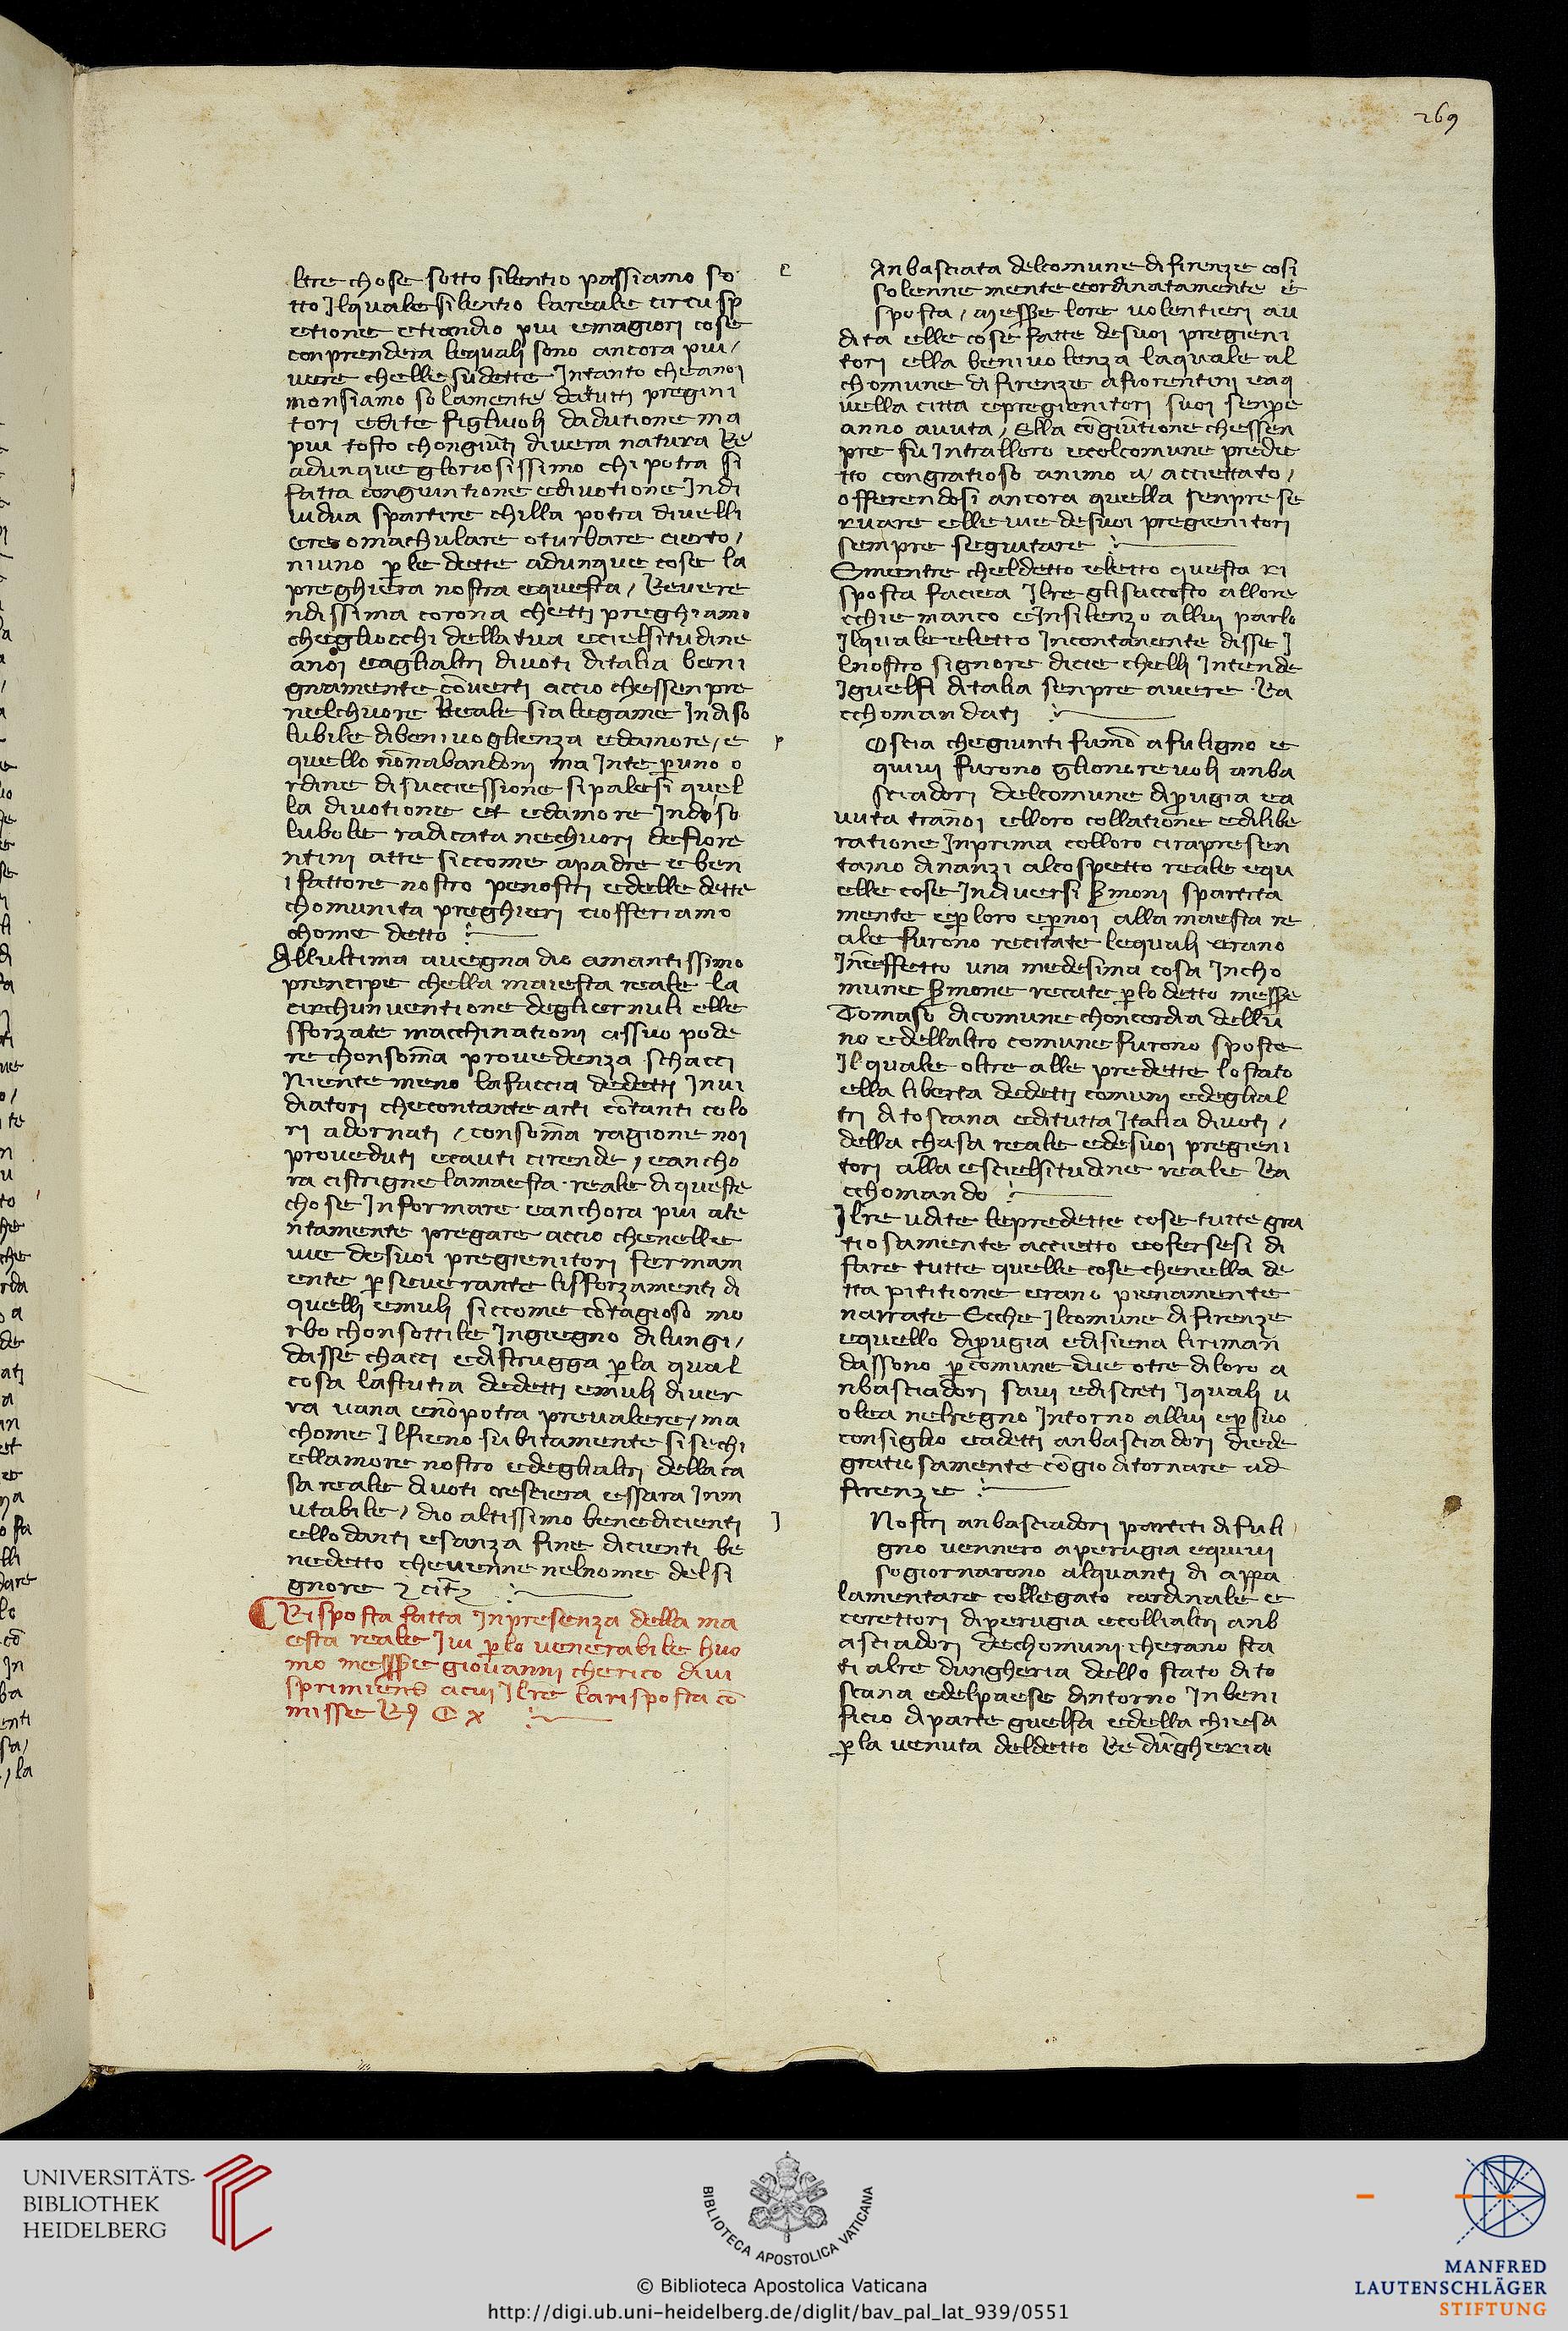 269
ltre chose sotto silentio passiamo so
tto Jlquale silentio lareale circusp
etione etiandio piu emagiorj cose
conprendera lequalj sono ancora piu /
vere chelle sudette Jntanto cheanoj
nonsiamo solamente datuttj pregini
tori edite figliuolj dadutione ma
piu tosto chongiuti divera natura Re
adunque gloriosissimo chi potra si
fatta conguintione edivotione Jndi
uidua spartire chilla potra divelli
ere omachulare oturbare cierto /
niuno p le dette adunque cose la
preghiera nostra equesta / Revere
ndissima corona chettj preghiamo
chegliocchi dellatua ecielsitudine
anoj eaglialtrj divoti ditalia beni
gnamente cōvertj accio chessenpre
nelchuore Reale sia legame Jndiso
lubile dibenivoglienza edamore / e
quello nōnabandonj ma Jnte p uno o
rdine disucciessione sipalesi quel
la divotione et edamore Jndiso
lubole radicata nechuorj defiore
ntini atte siccome apadre eben
ifattore nostro penostrj edelle dette
chomunita preghierj ciofferiamo
chome detto
Allultima avegna dio amantissimo
prencipe chella maiesta reale la
circhunventione deglieemuli elle
sforzate macchinationi assuo pode
re chonsoma provedenza schacci
Niente meno lafaccia dedettj Jnvi
diatori checontante arti cōtanti colo
ri adornati / consōma ragione noj
proveduti ecauti cirende / eancho
ra cistrigne lamaesta reale di queste
chose Jnformare eanchora piu ate
ntamente pregare accio chenelle
vie desuoi pregienitori fermam
ente p severante lisforzamenti di
quellj emulj siccome cōtagioso mo
rbo chonsottile Jngiegno dilungi /
dasse chacci edistrugga p la qual
cosa lastutia dedettj emulj diver
ra vana enō potra prevalere / ma
chome Jlfieno subitamente sisechi
ellamore nostro edeglialtrj della ca
sa reale divoti cresciera essara Jnm
utabile / dio altissimo benedicienti
ellodanti esanza fine dicienti be
nedetto chevienne nelnome delsi
gnore
Risposta fatta Jnpresenza della ma
esta reale Jvi p lo venerabile huo
mo messere giovannj cherico divi
sprimiens acuj Jlre larisposta cō
misse
e
Anbasciata delcomune difirenze cosi
solennemente eordinatamente e
sposta / messere lore volentieri au
dita elle cose fatte desuoi pregieni
tori ella benivolenza laquale al
chomune di firenze afiorentinj eaq
uella citta epregienitorj suoj senpre
anno avuta / Ella cōgiutione chessen
pre fu Jntralloro ecolcomune prede
tto congratioso animo a / acciettato /
offerendosi ancora quella senprese
rvare elle vie desuoi pregienitori
sempre seguitare
Ementre cheldetto eletto questa ri
sposta faciea Jlre glisaccosto allore
cchie manco eJnsilenzo alluj parlo
Jlquale eletto Jncontanente disse J
lnostro signore dicie chellj Jntende
Jguelfi ditalia senpre avere Ra
cchomandatj
p
Oscia chegiunti fumō afuligno e
quivi furono glionorevolj anba
sciadorj delcomune dip rugia ea
vuta tranoj elloro collatione edilibe
ratione Jnprima colloro cirapresen
tamo dinanzi alcospetto reale equ
elle cose Jndiversi smonj spartita
mente ep loro ep noj alla maesta re
ale furono recitate lequalj erano
Jneffetto una medesima cosa Jncho
mune smone recate p lo detto messere
Tomaso dicomune choncordia dellu
no edellaltro comune furono sposte
Jlquale oltre alle predette lo stato
ella liberta dedettj comunj edeglial
tri ditoscana editutta Jtalia divoti /
della chasa reale edesuoi pregieni
tori alla escielsitudine reale Ra
cchomando
Jlre udite lepredette cose tutte gra
tiosamente accietto eofersesi di
fare tutte quelle cose chenella de
tta pititione erano pienamente
narrate Ecche Jlcomune di firenze
equello dip rugia edisiena lirimañ
dassono p comune due otre diloro a
nbasciadorj savj ediscreti Jqualj u
olea nelregno Jntorno alluj ep suo
consiglio eadettj anbasciadori diede
gratiosamente cōgio ditornare ad
firenze
J
Nostrj anbasciadori partiti di fuli
gno vennero aperugia equivi
sogiornarono alquanti di appa
lamentare collegato cardinale e
corettori diperugia ecollialtri anb
asciadori dechomunj cherano sta
ti alre dungheria dello stato dito
scana edelpaese dintorno Jnbeni
ficio diparte guelfa edella chiesa
p la venuta deldetto Re dugheria
UNIVERSITÄTS-
BIBLIOTHEK
HEIDELBERG
BIBLIOTECA APOSTOLICA VATICANA
© Biblioteca Apostolica Vaticana
http://digi.ub.uni-heidelberg.de/diglit/bav_pal_lat_939/0551
MANFRED
LAUTENSCHLÄGER
STIFTUNG